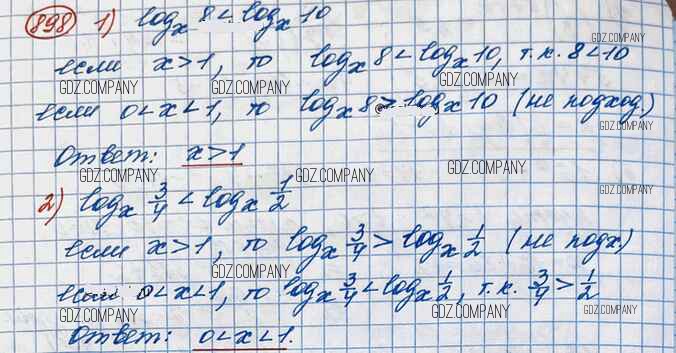 898 1) log_x 8 < log_x 10
GDZ.COMPANY
если x>1, то log_x 8 < log_x 10, т.к. 8<10
GDZ.COMPANY GDZ.COMPANY GDZ.COMPANY
если 0<x<1, то log_x 8 > log_x 10 (не подход.)
GDZ.COMPANY
Ответ: x>1
GDZ.COMPANY GDZ.COMPANY GDZ.COMPANY
2) log_x 3/4 < log_x 1/2
GDZ.COMPANY
если x>1, то log_x 3/4 > log_x 1/2 (не подх)
GDZ.COMPANY
если 0<x<1, то log_x 3/4 < log_x 1/2, т.к. 3/4 > 1/2
GDZ.COMPANY GDZ.COMPANY GDZ.COMPANY
Ответ: 0<x<1.